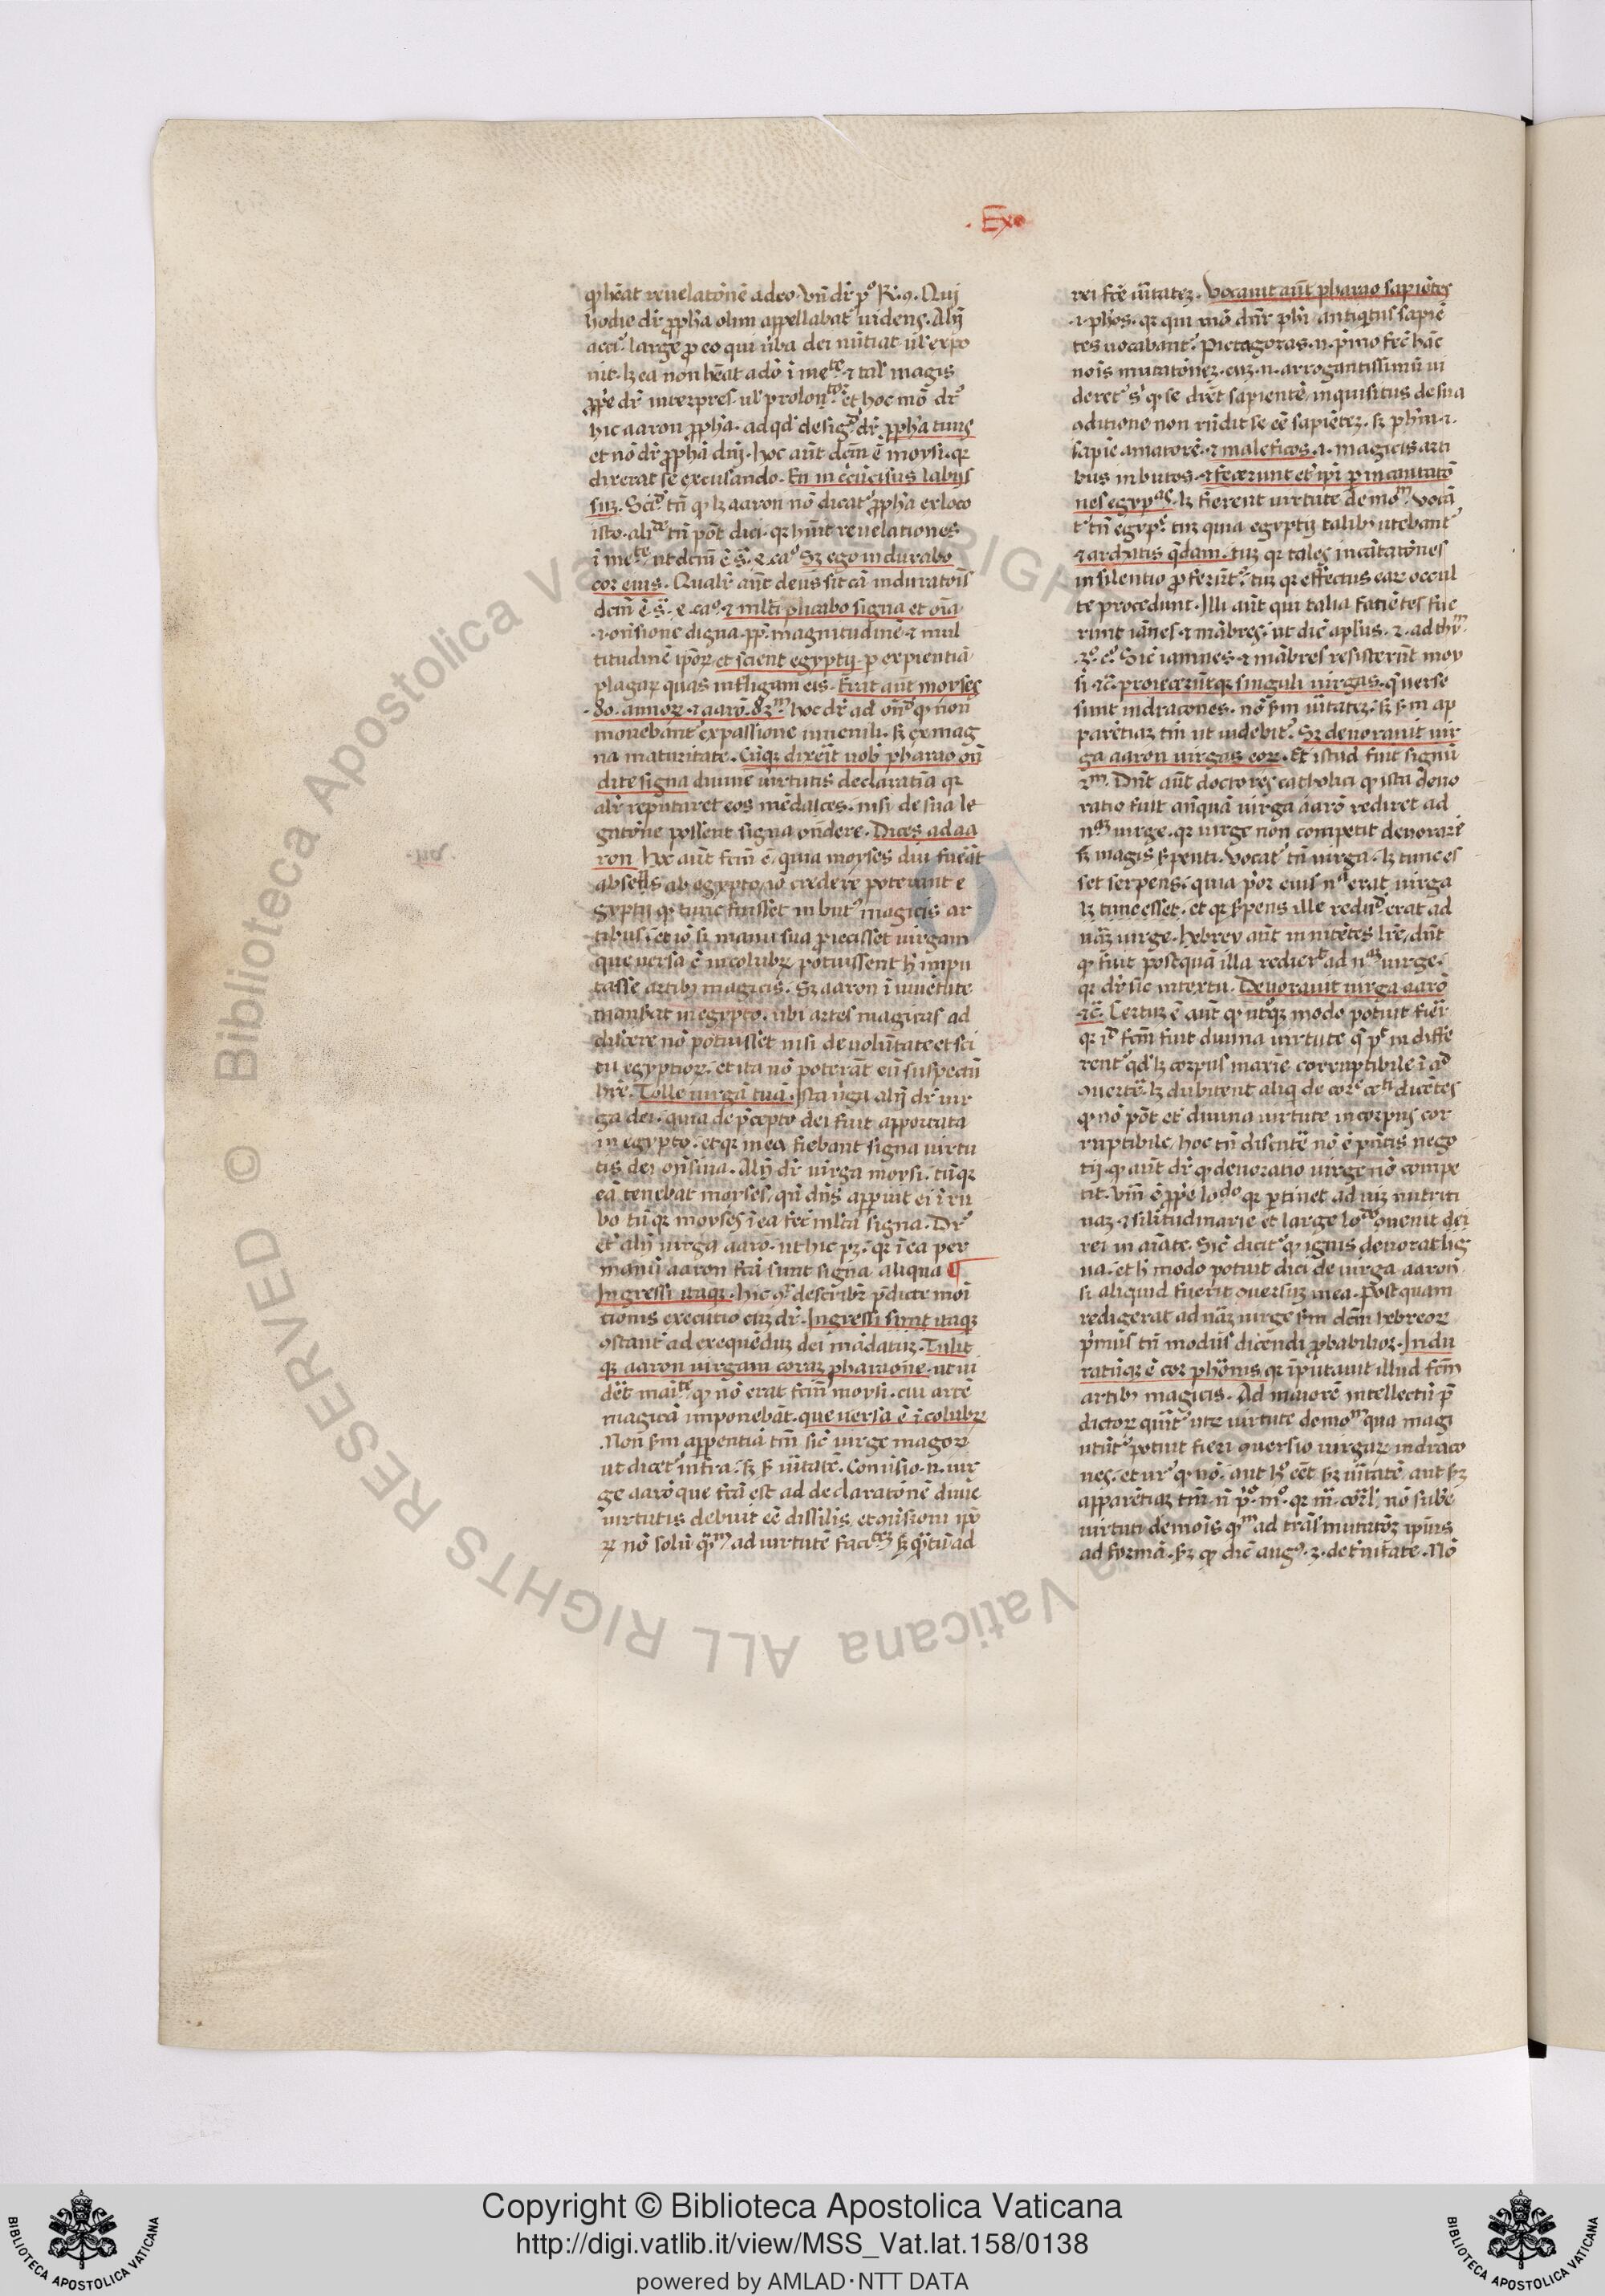 . Exo
qͥ hēat reuelatōnē a deo. Vn̄ dr̄ pͦ R̄. 9. Qui
hodie dr̄ ꝓph̄a olim appellabatᷣ uidens. Alij
acciᷣ. large ꝓ eo qui ūba dei nūtiat ul' expo
nit. lꝫ ea non hēat a dō ī meᵗᵉ. ⁊ tal' magis
ꝓp̄e dr̄ interpres ul' prolonᵗᵒʳ. et hoc mō drᷣ
hic aaron ꝓph̄a. ad qd' desigᵈ dr̄ ꝓph̄a tuus
et nō dr̄ ꝓph̄a dn̄j. hoc aūt dcm̄ ē moysi. qꝛ
dixerat se excusando. En incircūcisus labijs
suꝫ. Scᵈ. tn̄ ꝙ lꝫ aaron nō dicatᷣ ꝓph̄a ex loco
isto. aliᵗᵉ tn̄ pōt dici. qꝛ hn̄it reuelationes
ī meᵗᵉ ut dcm̄ ē s̄. 4. caᵒ Sꝫ ego indurabo
cor eius. Qualr̄ aūt deus sit cā induratōis
dcm̄ ē s̄. 4. caᵒ. ⁊ mlt'iplicabo signa et oīa
.i. on̄sione digna. ꝓp̄. magnitudinē ⁊ mul
titudinē ipōꝝ. et scient egyptij. ꝑ exꝑientiā
plagaꝝ quas infligam eis. Erat aūt moyses
.80. annoꝝ. ⁊ aarō. 83ᵐ. hoc dr̄ ad on̄ᵈ ꝙ non
mouebantᷣ ex passione iuuenili. sꝫ ex mag
na maturitate. Cūqꝫ dixerit uob̄ pharao on̄
dite signa diuine uirtutis declaratīa qꝛ
alr̄ reputaret eos mēdaces. nisi de sua le
gatōne possent signa on̄dere. Dices ad aa
ron hoc aūt fcm̄ ē. quia moyses diu fuerat
absens ab egypto. iō credere poterant e
gyptij ꝙ tunc fuisset inbutᷣ magicis ar
tibus. et iō si manu sua ꝓiecisset uirgam
que uersa ē in colubꝝ potuissent h̄ impu
tasse artibꝫ magicis. Sꝫ aaron ī iuuētute
manserat in egypto. ubi artes magicas ad
discere nō potuisset nisi de uolūtate et sci
tu egyptioꝝ. et ita nō poterāt eū suspectū
hr̄e. Tolle uirgā tuā. Ista ūga alij dr̄ uir
ga dei. quia de p̄cepto dei fuit apportata
in egypto. et qꝛ in ea fiebant signa uirtu
tis dei on̄siua. Alij dr̄ uirga moysi. tū qꝛ
eā tenebat moyses, qn̄ dn̄s apparuit ei ī ru
bo tū qꝛ moyses ī ea fec̄ mlta signa. Drᷣ
etᷣ alij uirga aarō. ut hic pꝫ. qꝛ ī ea per
manū aaron fcā sunt signa aliqua ¶
Ingressi itaqꝫ. hic 9ʳ describr̄ p̄dicte moi
tionis executio cuꝫ dr̄. Ingressi sunt itaqꝫ
9stantᷣ ad exequēduꝫ dei mādatuꝫ. Tulit
qꝫ aaron uirgam coraꝫ pharaone. ut ui
dēt maiᵗᵉ ꝙ nō erat fcm̄ moysi. cui artē
magicā imponebāt. que uersa ē ī colubꝝ
.Non sm̄ apparentiā tm̄ sic̄ uirge magoꝝ
ut dicetᷣ infra. sꝫ s̄ ūitatē. Conuersio. n. uir
ge aarō que fcā est ad declaratōnē diuīe
uirtutis debuit eē dissilis, 9uersioni ipō
ꝝ nō solū qᷓᵐ ad uirtutē faciᵗᵉᵐ sꝫ qᷓtū ad
rei fcē ūitateꝫ. Vocauit aūt pharao sapiētes
.i. ph̄os. qꝛ qui mō dn̄r ph̄i antiqͥtus sapiē
tes uocabantᷣ. Pictagoras. n. pͥmo fec̄ hāc
nois mutatōneꝫ. cuꝫ. n. arrogantissimū ui
deretᷣ sͥ ꝙ se dr̄et sapientē, inquisitus de sua
9ditione non rn̄dit se eē sapiēteꝫ. sꝫ ph̄m .i.
sapiē amatorē. ⁊ maleficos .i. magicis arti
bus inbutos. ⁊ fecerunt et ip̄i ꝑ incantatō
nes egypᵃˢ. lꝫ fierent uirtute demoᵐ. Vocā
tᷣ tn̄ egypᷣ. tuꝫ quia egyptij talibꝫ utebantᷣ
⁊ archanis qͥdam. tuꝫ qꝛ tales incātatōnes
in silentio ꝓferūtᷣ. tuꝫ qꝛ effectus eaꝝ occul
te procedunt. Illi aūt qui talia faciētes fue
runt iānes. ⁊ mābres. ut dic̄ apl'us. 2. ad thiᵐ
.3ᵒ. cᵒ. Sic̄ iamnes ⁊ mābres resisterūt moy
si ⁊c̄. proieceruntqꝫ singuli uirgas. q̄ uerse
sunt in dracones. nō s̄m ūitateꝫ. sꝫ s̄m ap
parētiaꝫ tm̄ ut uidebitᷣ. Sꝫ deuorauit uir
ga aaron uirgas eoꝝ. Et istud fuit signū
2ᵐ. Dn̄t aūt doctores catholici ꝙ ista deuo
ratio fuit anq̄uā uirga aarō rediret ad
nᵃᵐ uirge. qꝛ uirge non competit deuorare
sꝫ magis s̄penti. Vocatᷣ tn̄ uirga. lꝫ tunc es
set serpens. quia pͥor eius nᵃ erat uirga
lꝫ tunc esset. et qꝛ s̄pens ille reduᵈ erat ad
nāꝫ uirge. hebrey aūt innitētes lr̄e, dn̄t
ꝙ fuit postquā illa redierᵗ ad nᵃᵐ uirge.
qꝛ dr̄ sic in textu. Deuorauit uirga aarō
⁊c̄. Certuꝫ ē aūt ꝙ utqꝫ modo potuit fieri
qꝛ iᵈ fcm̄ fuit diuina uirtute q̄ pᵗ indiffe
rentᷣ qd' lꝫ corpus maxīe corruptibile ī aᵈ
9uertē. lꝫ dubitent aliqͥ de corᵉ ceᵗⁱ ducētes
ꝙ nō pōt etᷣ diuina uirtute in corpus cor
ruptibile, hoc tn̄ discutē nō ē pn̄tis nego
tij. ꝙ aūt dr̄ ꝙ deuoratio uirge nō compe
tit. Vm̄ ē ꝓp̄e loᵈᵒ qꝛ ꝑtinet ad uiꝫ nutriti
uaꝫ. ⁊ silitudinarie et large loᵈᵒ 9uenit dei
rei inaīate. Sic̄ dicitᷣ ꝙ ignis deuorat lig
na. et h̄ modo potuit dici de uirga aaron
si aliquid fuerit 9uersuꝫ in ea. Postquam
redigerat ad nāꝫ uirge sm̄ dcm̄ hebreoꝝ
pͥmus tn̄ modus dicendi ꝓbabilioꝝ. Indu
ratūqꝫ ē cor phōnis, qꝛ īputauit illud fcm̄
artibꝫ magicis. Ad maiorē intellectū p̄
dictoꝝ querītᷣ utꝝ uirtute demoᵐ qua magi
utūtᷣ potuit fieri 9uersio uirgaꝝ in draco
nes. et urᷣ ꝙ nō. aut hᵒ eēt sꝫ ūitatē, aut sꝫ
apparētiaꝫ tm̄. n̄ pͦ. mᵒ. qꝛ nᵃ. corꝑl'. nō sube
uirtuti demoīs qᷓᵐ ad trāsmutatōꝫ ipius
ad formā. sꝫ ꝙ dic̄ augᵒ. 3. de tͥnitate. Nō
Copyright © Biblioteca Apostolica Vaticana
http://digi.vatlib.it/view/MSS_Vat.lat.158/0138
powered by AMLAD·NTT DATA
BIBLIOTECA APOSTOLICA VATICANA
BIBLIOTECA APOSTOLICA VATICANA
© Biblioteca Apostolica Vaticana ALL RIGHTS RESERVED